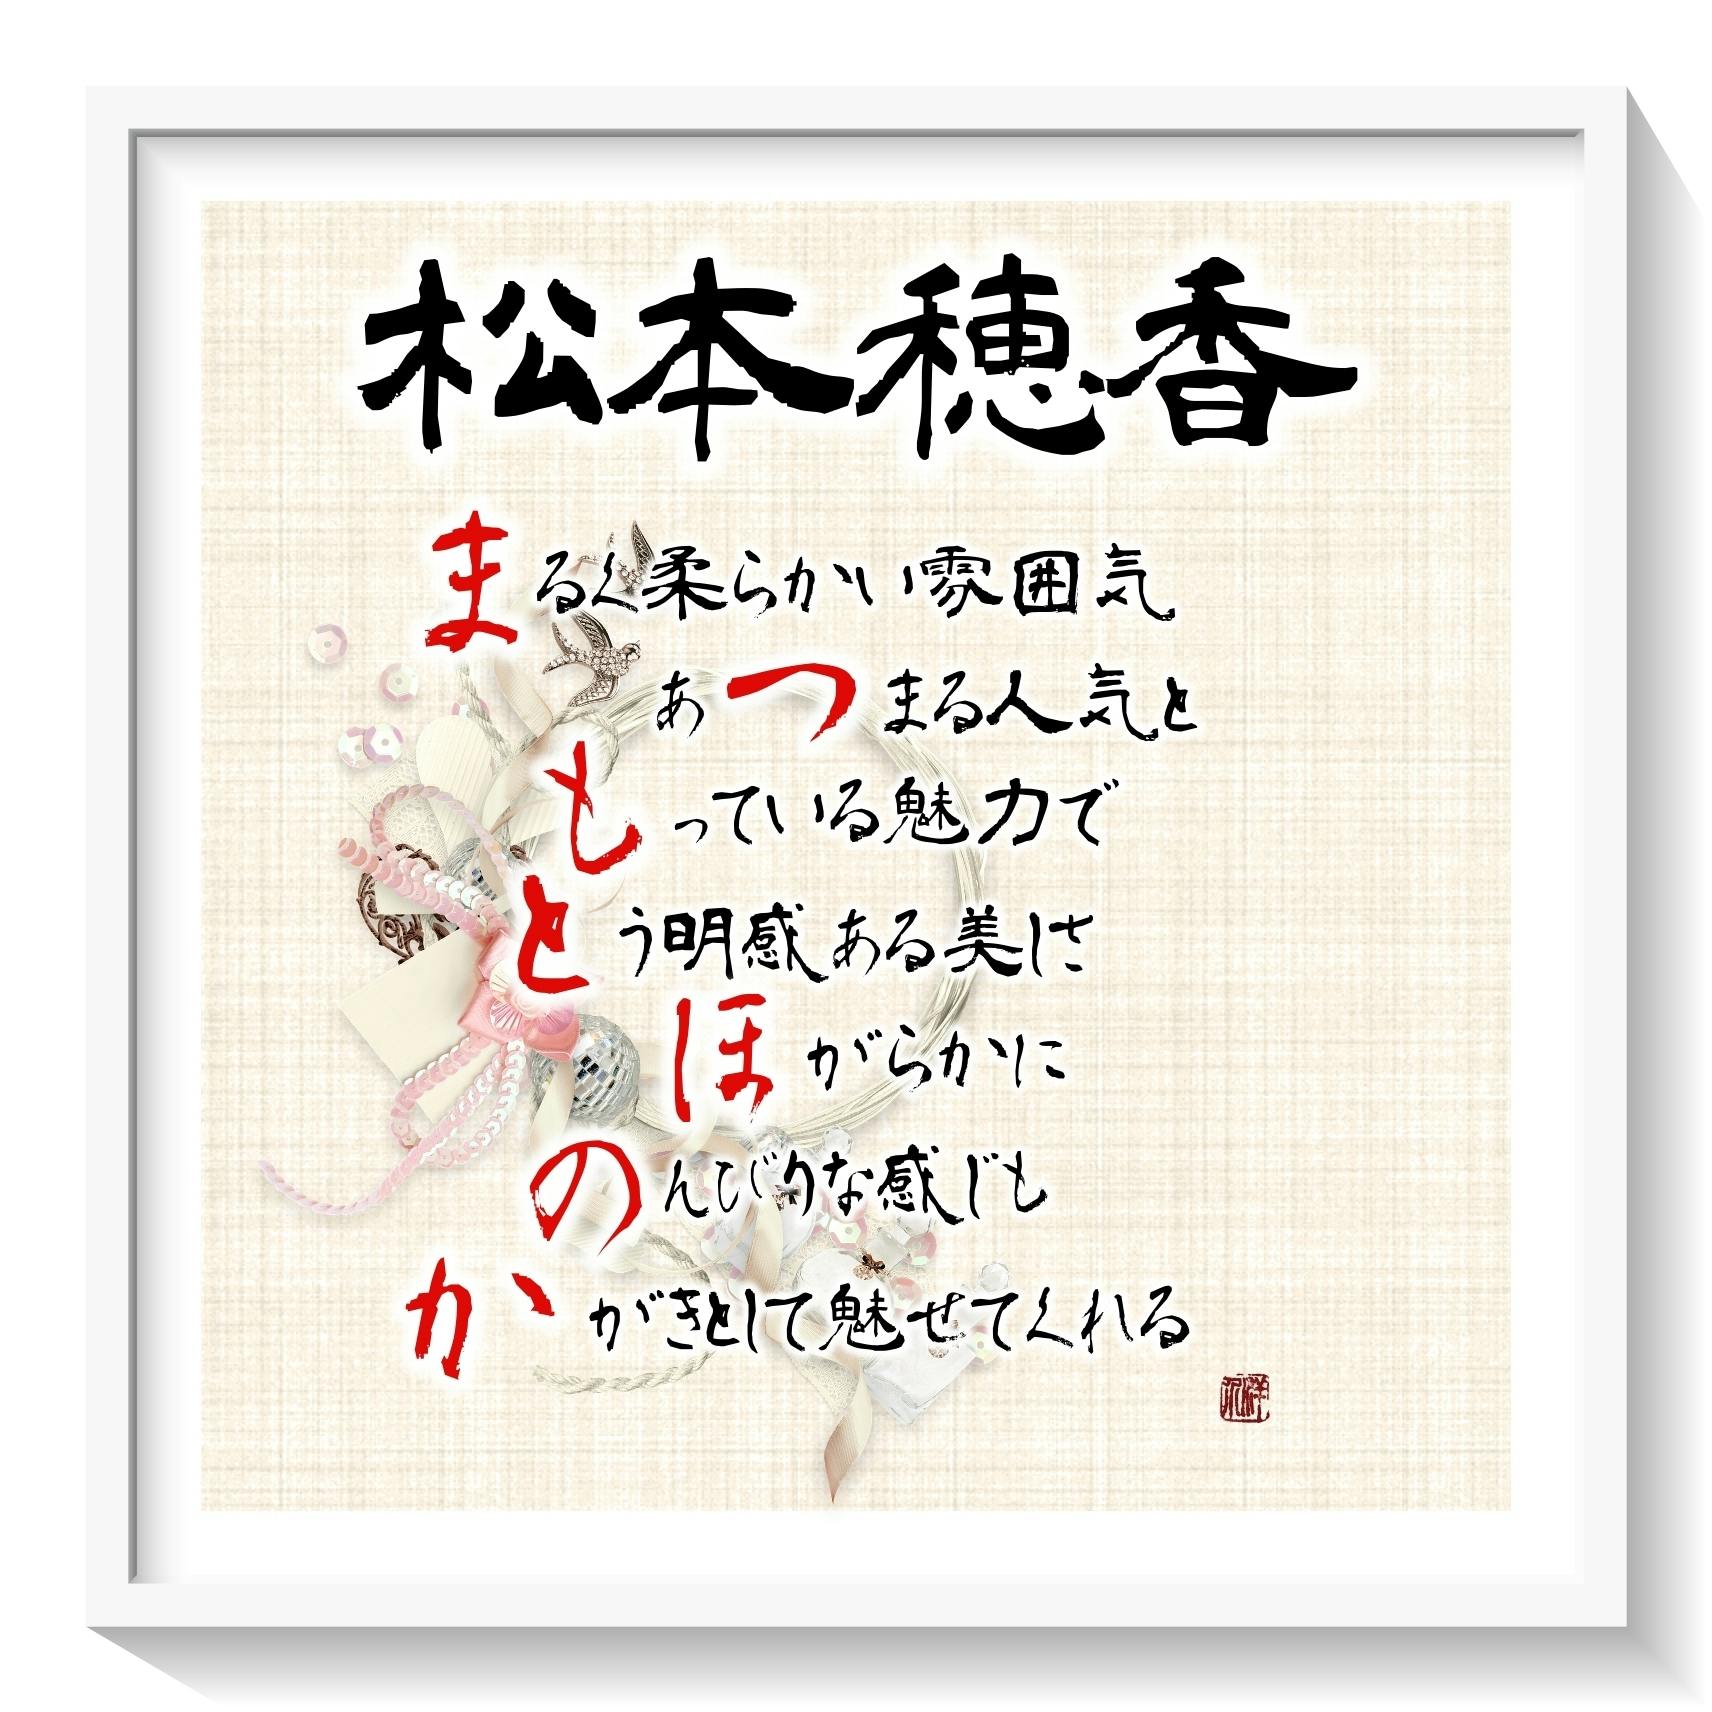 松本穂香
まるく柔らかい雰囲気
あつまる人気と
もっている魅力で
とう明感ある美しさ
ほがらかに
のんびりな感じも
かがきとして魅せてくれる